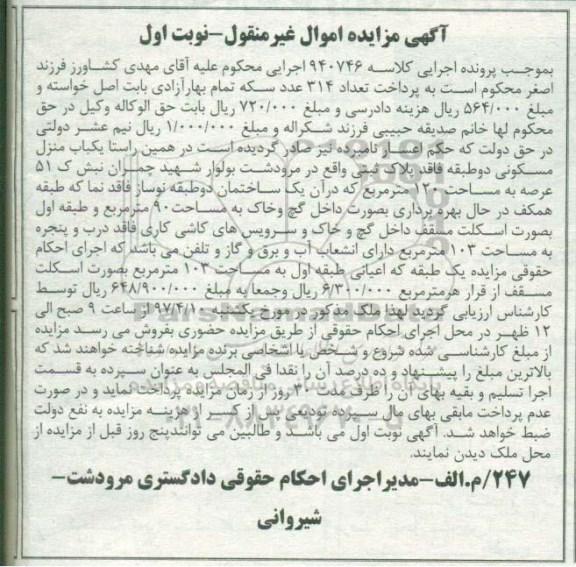 آگهی مزایده اموال غیرمنقول-نوبت اول
بموجب پرونده اجرایی کلاسه ۹۴۰۷۴۶ اجرایی محکوم علیه آقای مهدی کشاورز فرزند
اصغر محکوم است به پرداخت تعداد ۳۱۴ عدد سکه تمام بهارآزادی بابت اصل خواسته و
مبلغ ۵۶۴/۰۰۰ ریال هزینه دادرسی و مبلغ ۷۲۰/۰۰۰ ریال بابت حق الوکاله وکیل در حق
محکوم لها خانم صدیقه حبیبی فرزند شکراله و مبلغ ۱/۰۰۰/۰۰۰ ریال نیم عشر دولتی
در حق دولت که حکم اعسار نامبرده نیز صادر گردیده است در همین راستا یکباب منزل
مسکونی دوطبقه فاقد پلاک ثبتی واقع در مرودشت بولوار شهید چمران نبش ک ۵۱
عرصه به مساحت ۱۲۰ مترمربع که درآن یک ساختمان دوطبقه نوساز فاقد نما که طبقه
همکف در حال بهره برداری بصورت داخل گچ وخاک به مساحت ۹۰ مترمربع و طبقه اول
بصورت اسکلت مسقف داخل گچ و خاک و سرویس های کاشی کاری فاقد درب و پنجره
به مساحت ۱۰۳ مترمربع دارای انشعاب آب و برق و گاز و تلفن می باشد که اجرای احکام
حقوقی مزایده یک طبقه که اعیانی طبقه اول به مساحت ۱۰۳ مترمربع بصورت اسکلت
مسقف از قرار هرمترمربع ۶/۳۰۰/۰۰۰ ریال وجمعا به مبلغ ۶۴۸/۹۰۰/۰۰۰ ریال توسط
کارشناس ارزیابی گردید لهذا ملک مذکور در مورخ یکشنبه ساعت ۹ صبح الی
۱۲ ظهر در محل اجرای احکام حقوقی از طریق مزایده حضوری بفروش می رسد مزایده
از مبلغ کارشناسی شده شروع و شخص یا اشخاصی برنده مزایده شناخته خواهند شد که
بالاترین مبلغ را پیشنهاد و ده درصد آن را نقدا فی المجلس به عنوان سپرده به قسمت
اجرا تسلیم و بقیه بهای آن را ظرف مدت روز از زمان مزایده پرداخت نماید و در صورت
عدم پرداخت مابقی بهای مال سپرده تودیعی پس از کسر از هزینه مزایده به نفع دولت
ضبط خواهد شد. آگهی نوبت اول می باشد و طالبین می توانندپنج روز قبل از مزایده از
محل ملک دیدن نمایند.
۲۴۷/م.الف-مدیراجرای احکام حقوقی دادگستری مرودشت-
شیروانی